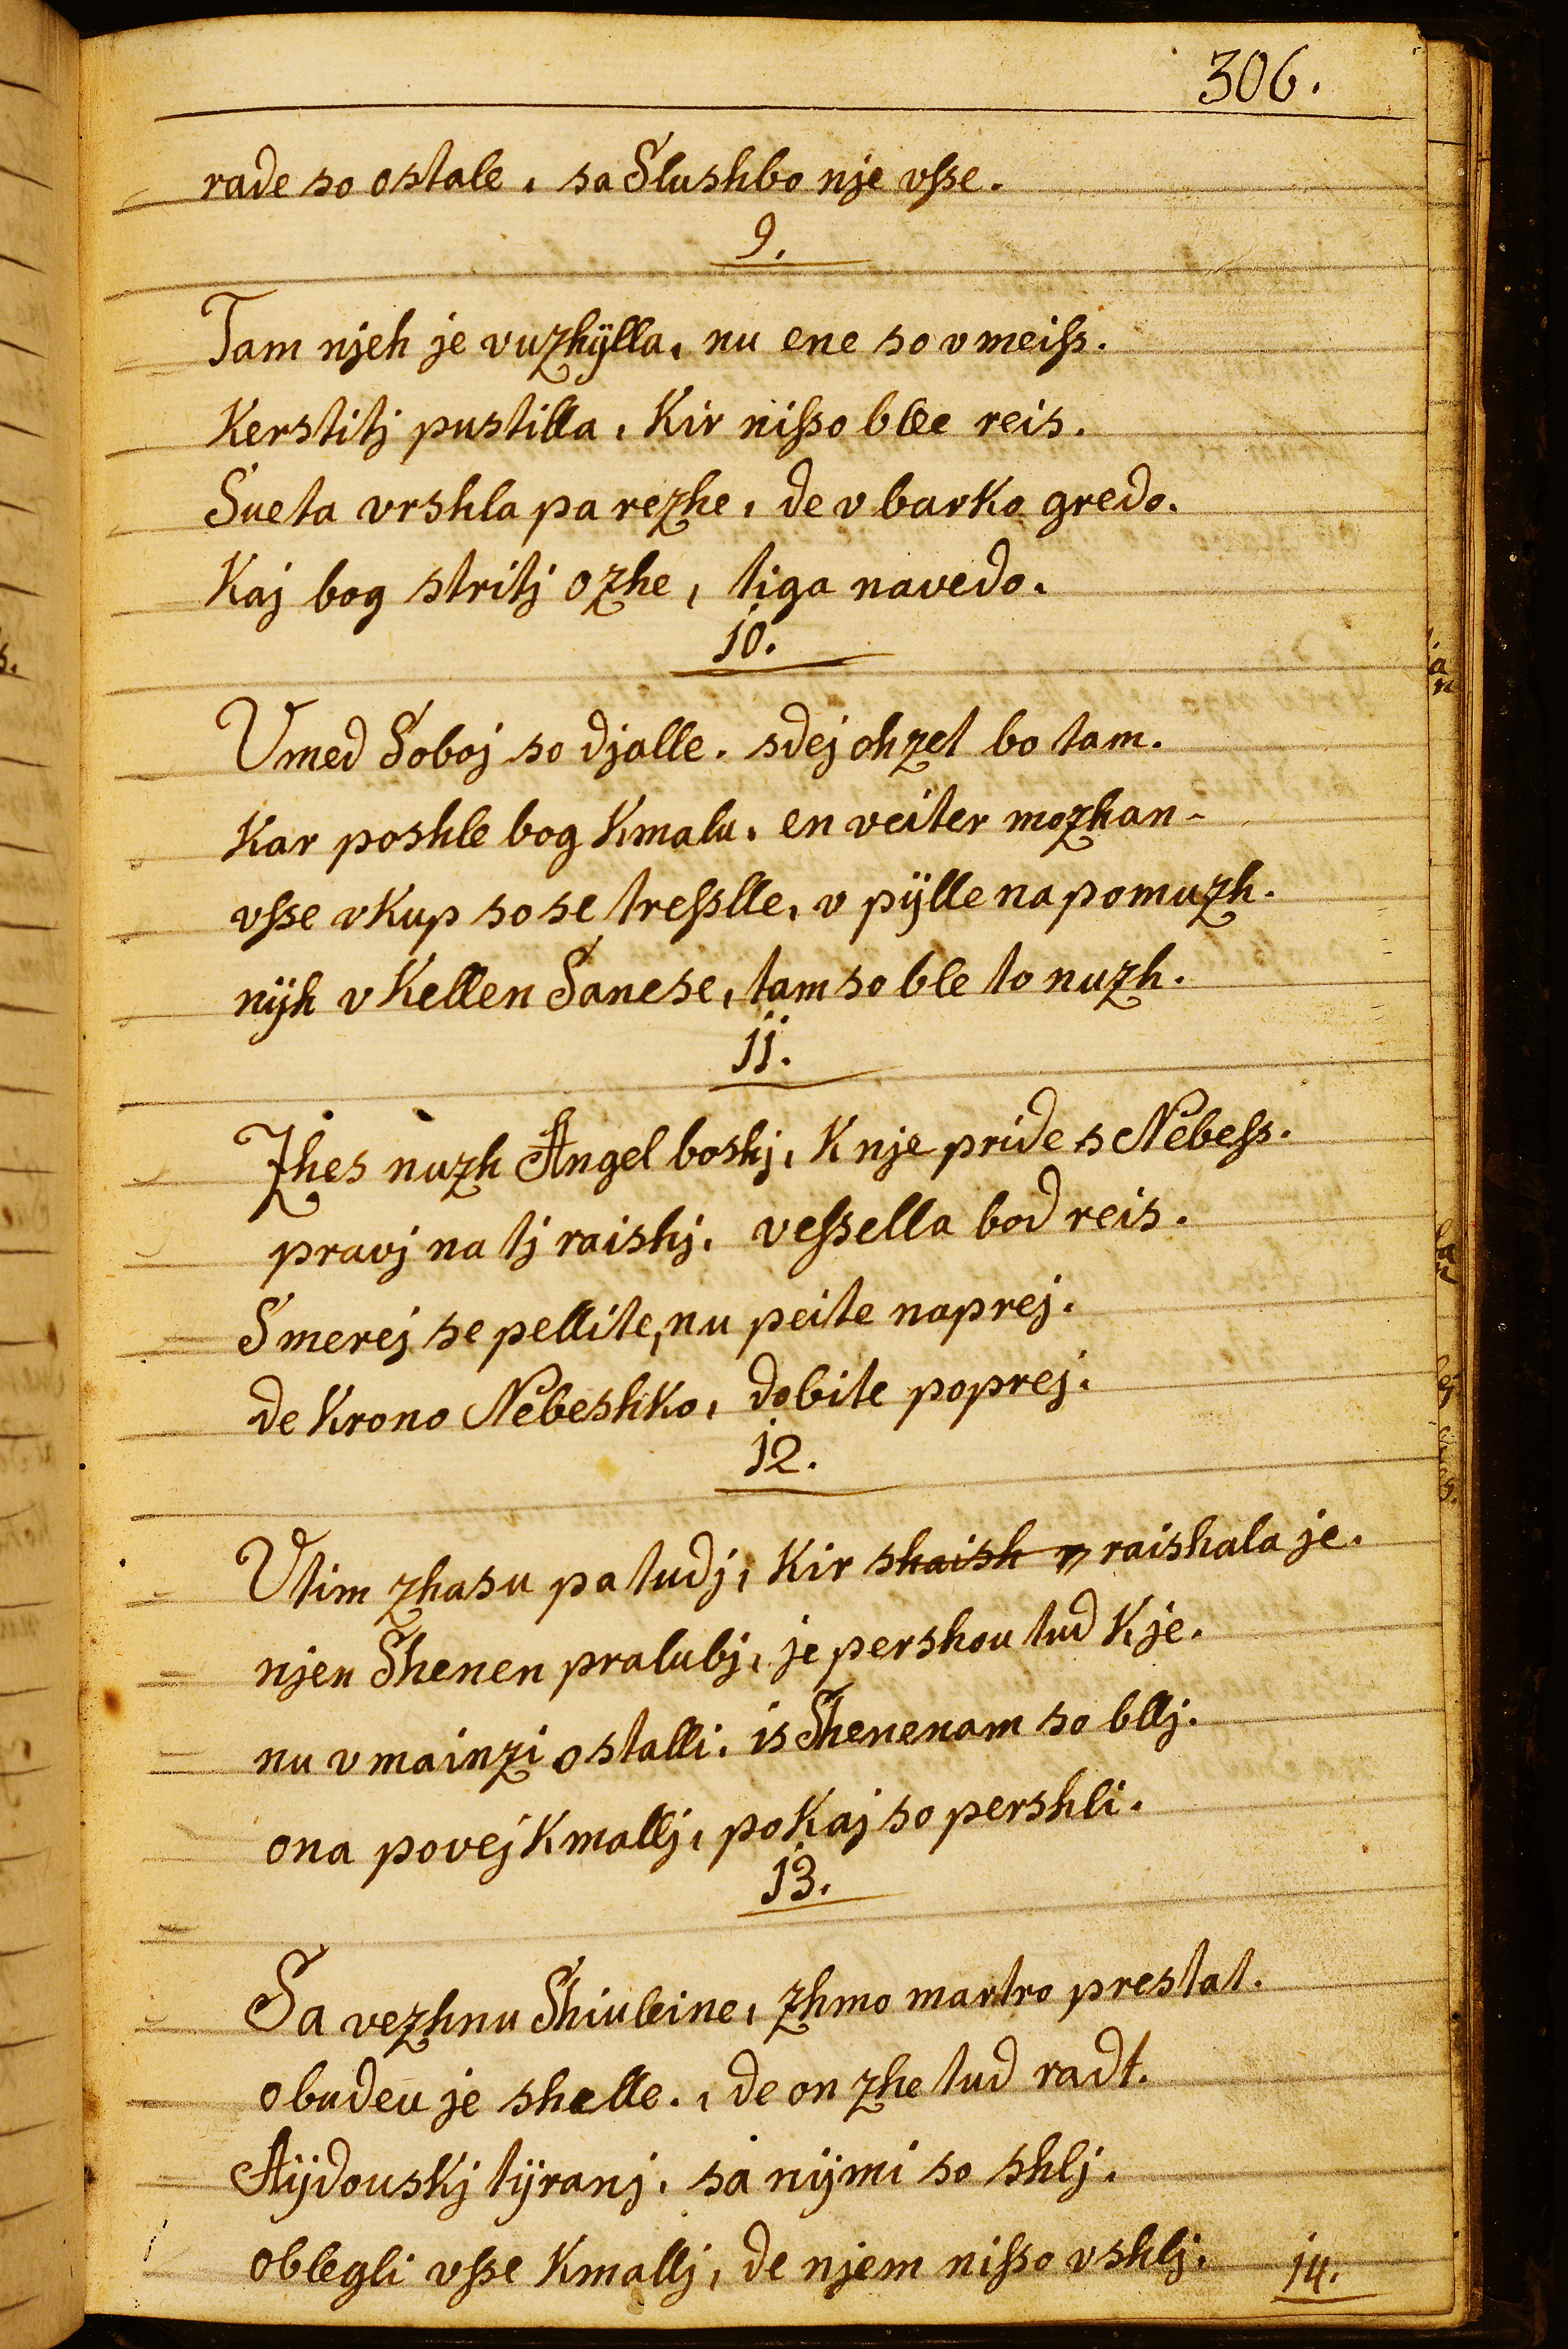 306.
rade so ostale, sa Slushbo nje vsse.
9.
Tam njeh je vuzhÿlla, nu ene so v meiss.
Kerstitj pustilla, Kir nisso blle reis.
Sueta vrshla pa rezhe, de v barko gredo.
Kaj bog stritj ozhe, tiga navedo.
10.
Vmed Soboj so djalle. sdej ohzet bo tam.
Kar poshle bog Kmalu, en veiter mozhan-
vsse vkup so se tresslle, v pÿlle na pomuzh.
nÿh v Kellen Sanese, tam so ble to nuzh.
11.
Zhes nuzh Angel boshj, K nje pride s Nebess.
pravj na tj raishj, vessella bod reis.
S merej se pellite, nu peite naprej.
de Krono Nebeshko, dobite poprej.
12.
Vtim zhasu pa tudj, Kir shaish raishala je.
njen Shenen pralubj, je pershou tud K je.
nu v mainzi ostalli, is Shenenam so bllj.
ona povej Kmallj, po Kaj so pershli.
13.
Sa vezhnu Shiuleine, zhmo martro prestat.
obudeu je shelle., de on zhe tud radt.
Aÿdouskj tÿranj, sa nÿmi so shlj.
oblegli vsse Kmallj, de njem nisso vshlj.
14.